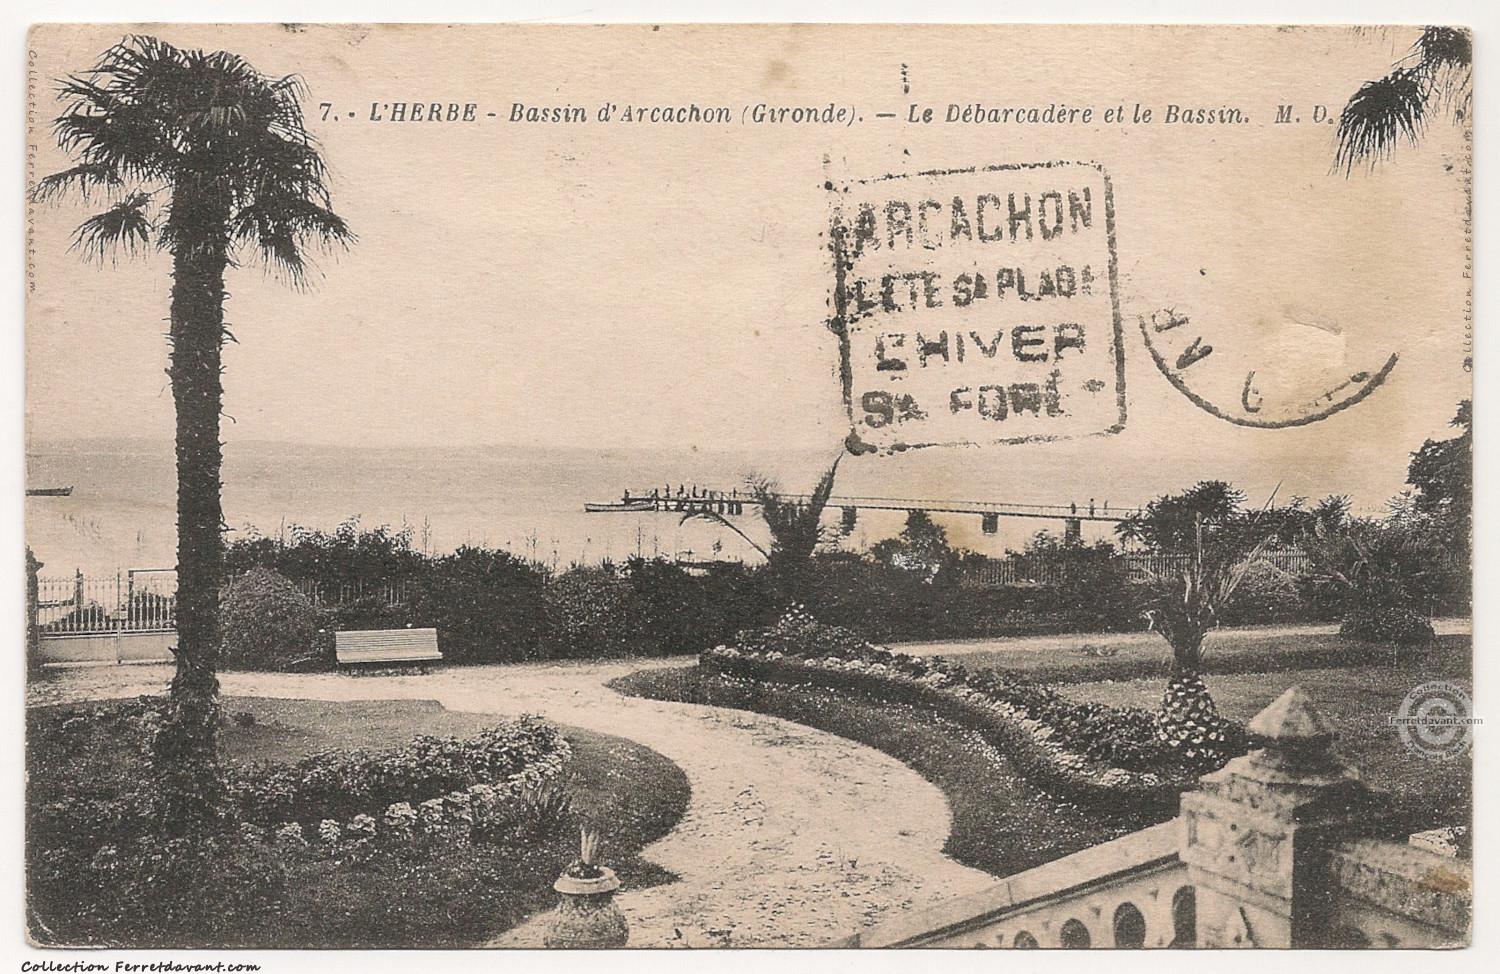 7. - L'HERBE - Bassin d'Arcachon (Gironde). — Le Débarcadère et le Bassin. M. D.
ARCACHON
L'ETE SA PLAGE
L'HIVER
SA FORÊT
Collection Ferretdavant.com
Collection Ferretdavant.com
Collection
Ferretdavant.com
Collection Ferretdavant.com